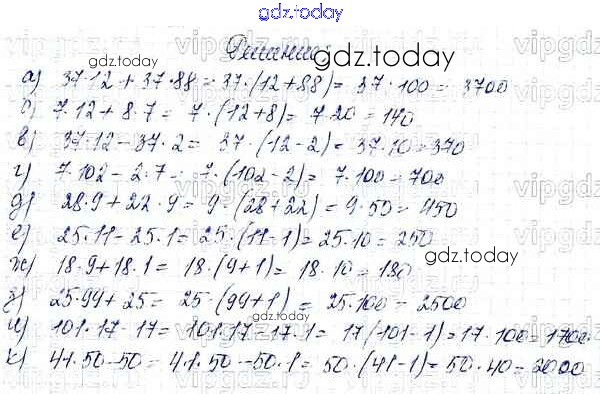 gdz.today
Решение
gdz.today
а) 37·12 + 37·88 = 37·(12+88) = 37·100 = 3700
б) 7·12 + 8·7 = 7·(12+8) = 7·20 = 140
в) 37·12 - 37·2 = 37·(12-2) = 37·10 = 370
г) 7·102 - 2·7 = 7·(102-2) = 7·100 = 700
д) 28·9 + 22·9 = 9·(28+22) = 9·50 = 450
е) 25·11 - 25·1 = 25·(11-1) = 25·10 = 250
gdz.today
ж) 18·9 + 18·1 = 18·(9+1) = 18·10 = 180
з) 25·99 + 25 = 25·(99+1) = 25·100 = 2500
и) 101·17 - 17 = 101·17 - 17·1 = 17(101-1) = 17·100 = 1700
к) 41·50 - 50 = 41·50 - 50·1 = 50·(41-1) = 50·40 = 2000